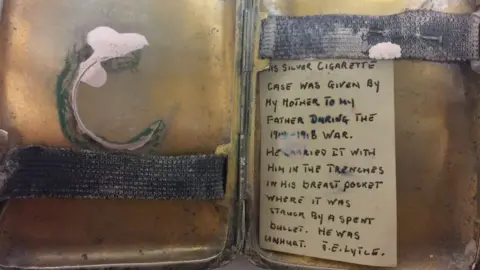 HIS SILVER CIGARETTE
CASE WAS GIVEN BY
MY MOTHER TO MY
FATHER DURING THE
1914-1918 WAR.
HE CARRIED IT WITH
HIM IN THE TRENCHES
IN HIS BREAST POCKET
WHERE IT WAS
STRUCK BY A SPENT
BULLET. HE WAS
UNHURT. T.E. LYTLE.